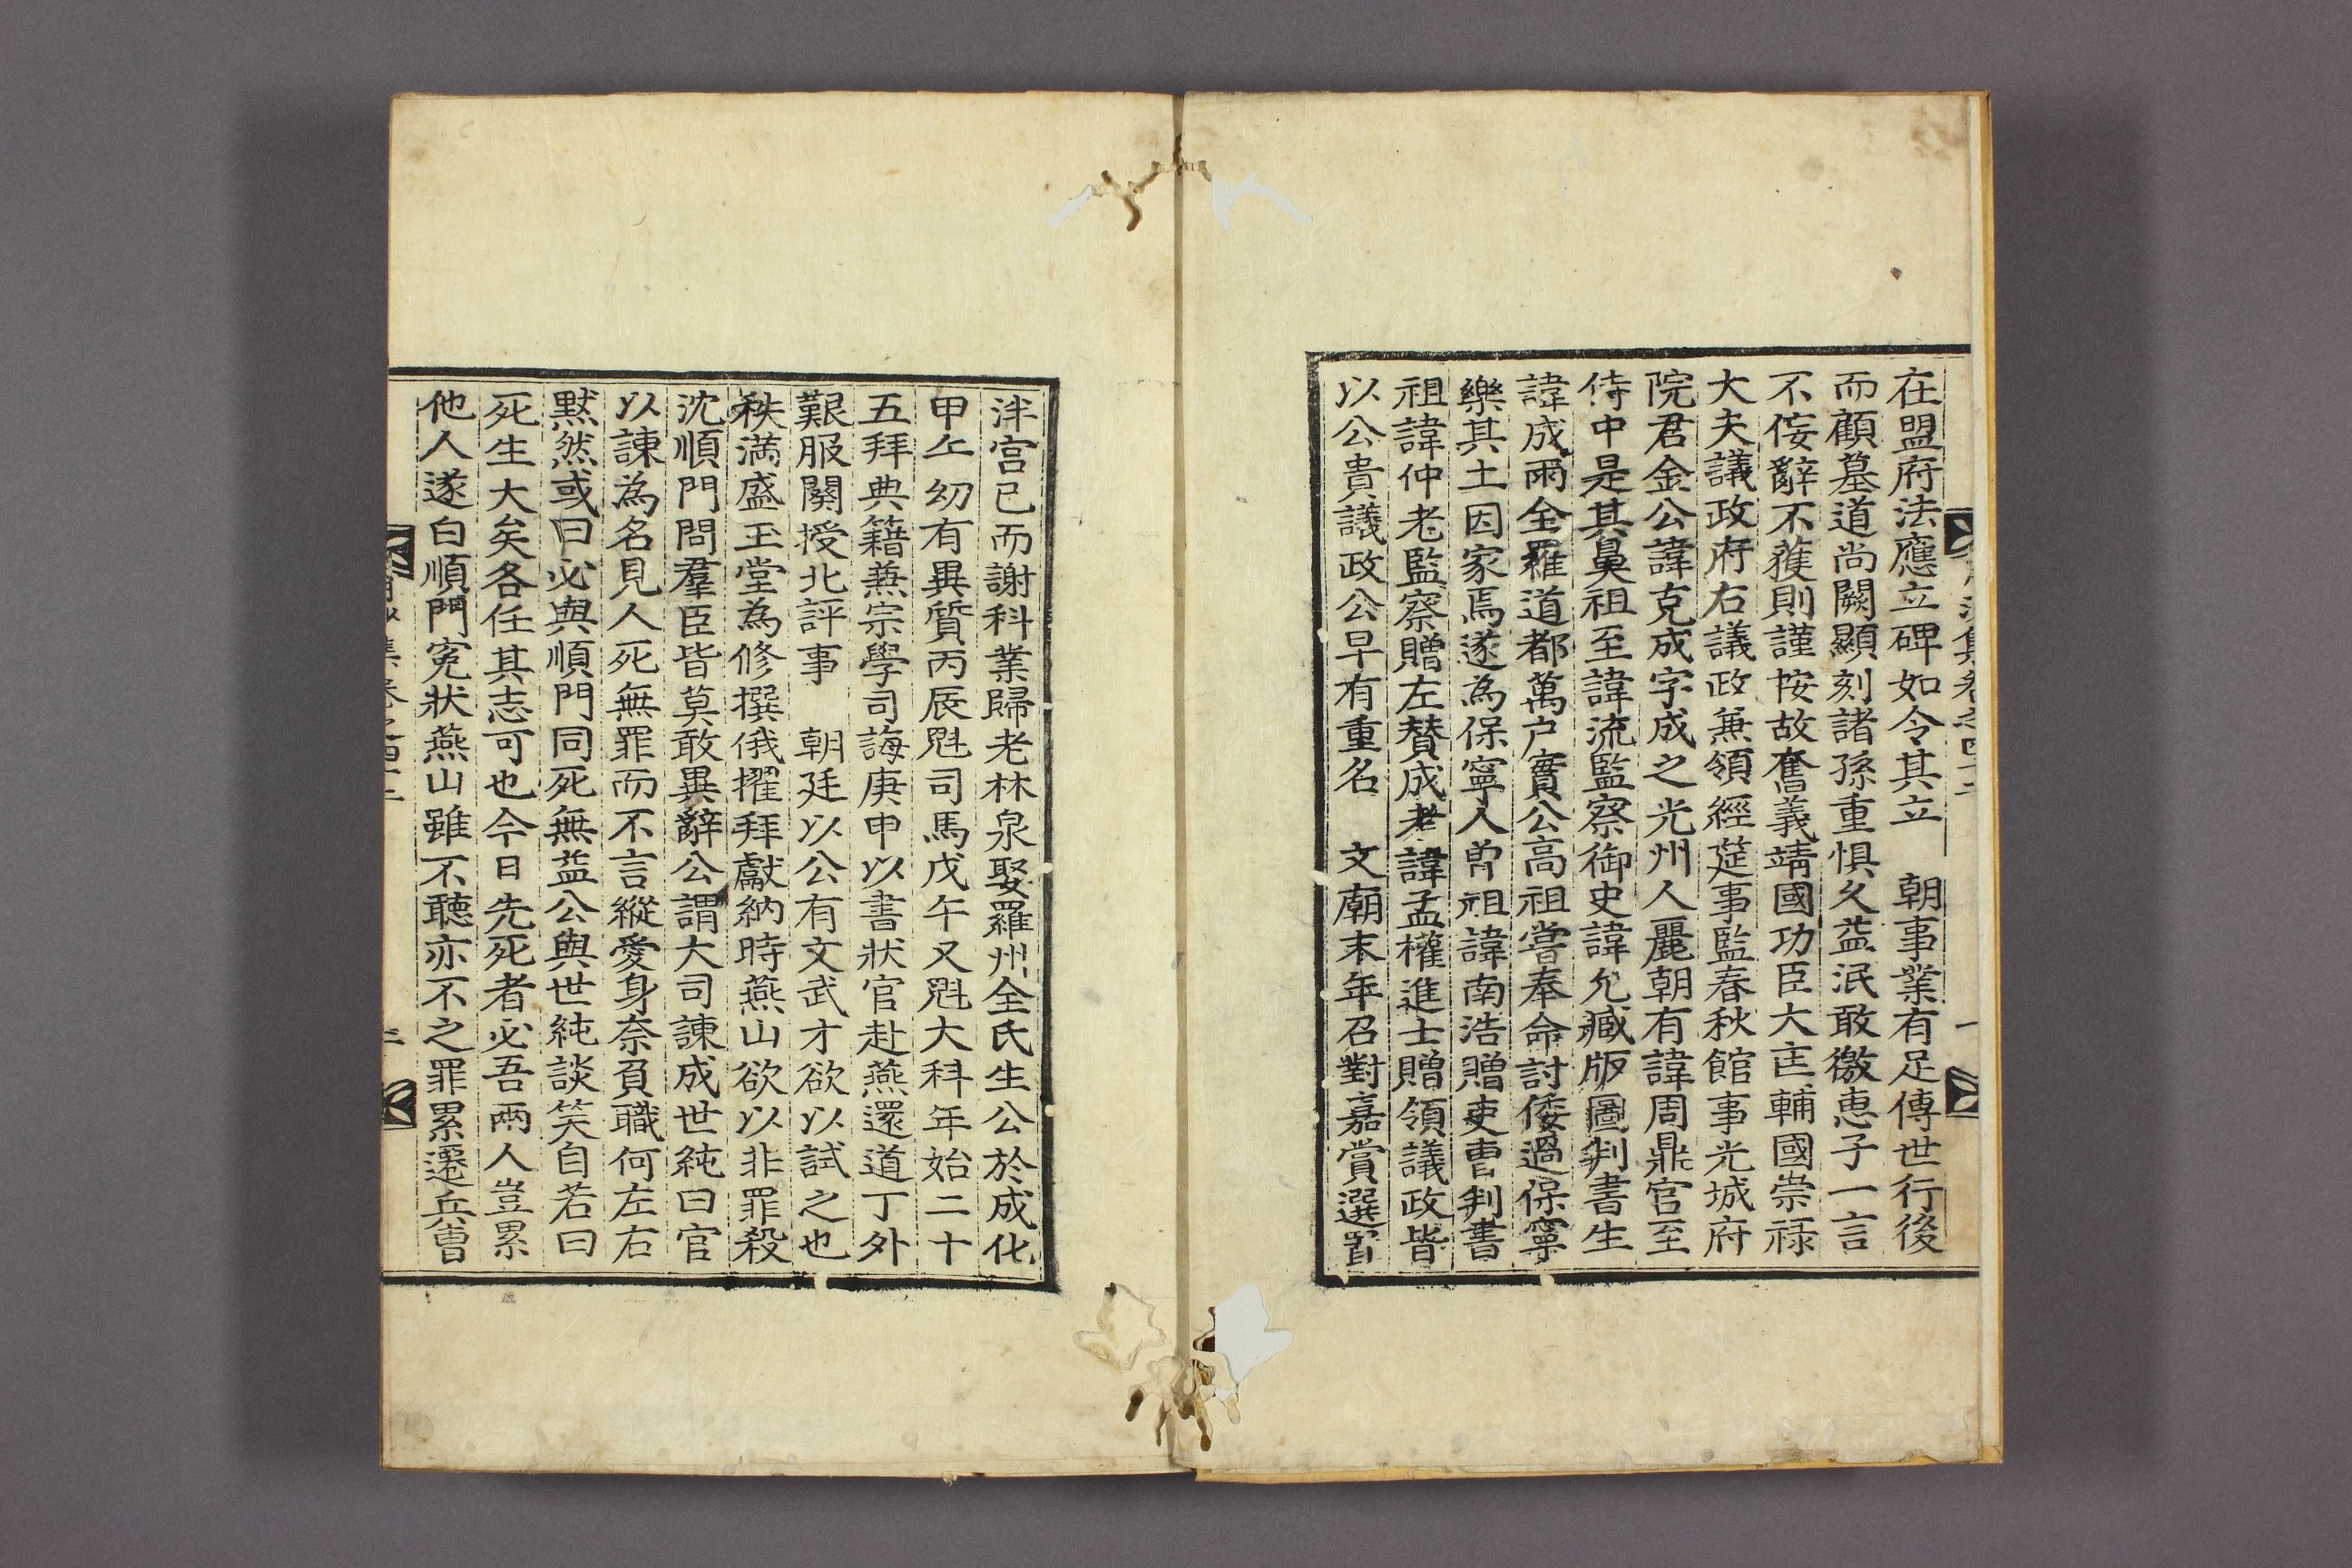 在盟府法應立碑如令其立　朝事業有足傳世行後
而顧墓道尚闕顯刻諸孫重惧久益泯敢徼惠子一言
不佞辭不獲則謹按故奮義靖國功臣大匡輔國崇禄
大夫議政府右議政兼領經筵事監春秋館事光城府
院君金公諱克成字成之光州人麗朝有諱周鼎官至
侍中是其鼻祖至諱流監察御史諱允臧版圖判書生
諱成雨全羅道都萬户實公高祖嘗奉命討倭過保寧
樂其土因家焉遂為保寧人曾祖諱南浩贈吏曹判書
祖諱仲老監察贈左賛成考諱孟權進士贈領議政皆
以公貴議政公早有重名　文廟末年召對嘉賞選置
泮宮已而謝科業歸老林泉娶羅州全氏生公於成化
甲午幼有異質丙辰魁司馬戊午又魁大科年始二十
五拜典籍兼宗學司誨庚申以書狀官赴燕還道丁外
艱服闋授北評事　朝廷以公有文武才欲以試之也
秩満盛玉堂為修撰俄擢拜獻納時燕山欲以非罪殺
沈順門問羣臣皆莫敢異辭公謂大司諫成世純曰官
以諫為名見人死無罪而不言縱愛身奈負職何左右
黙然或曰必與順門同死無益公與世純談笑自若曰
死生大矣各任其志可也今日先死者必吾兩人豈累
他人遂白順門寃狀燕山雖不聽亦不之罪累遷兵曹